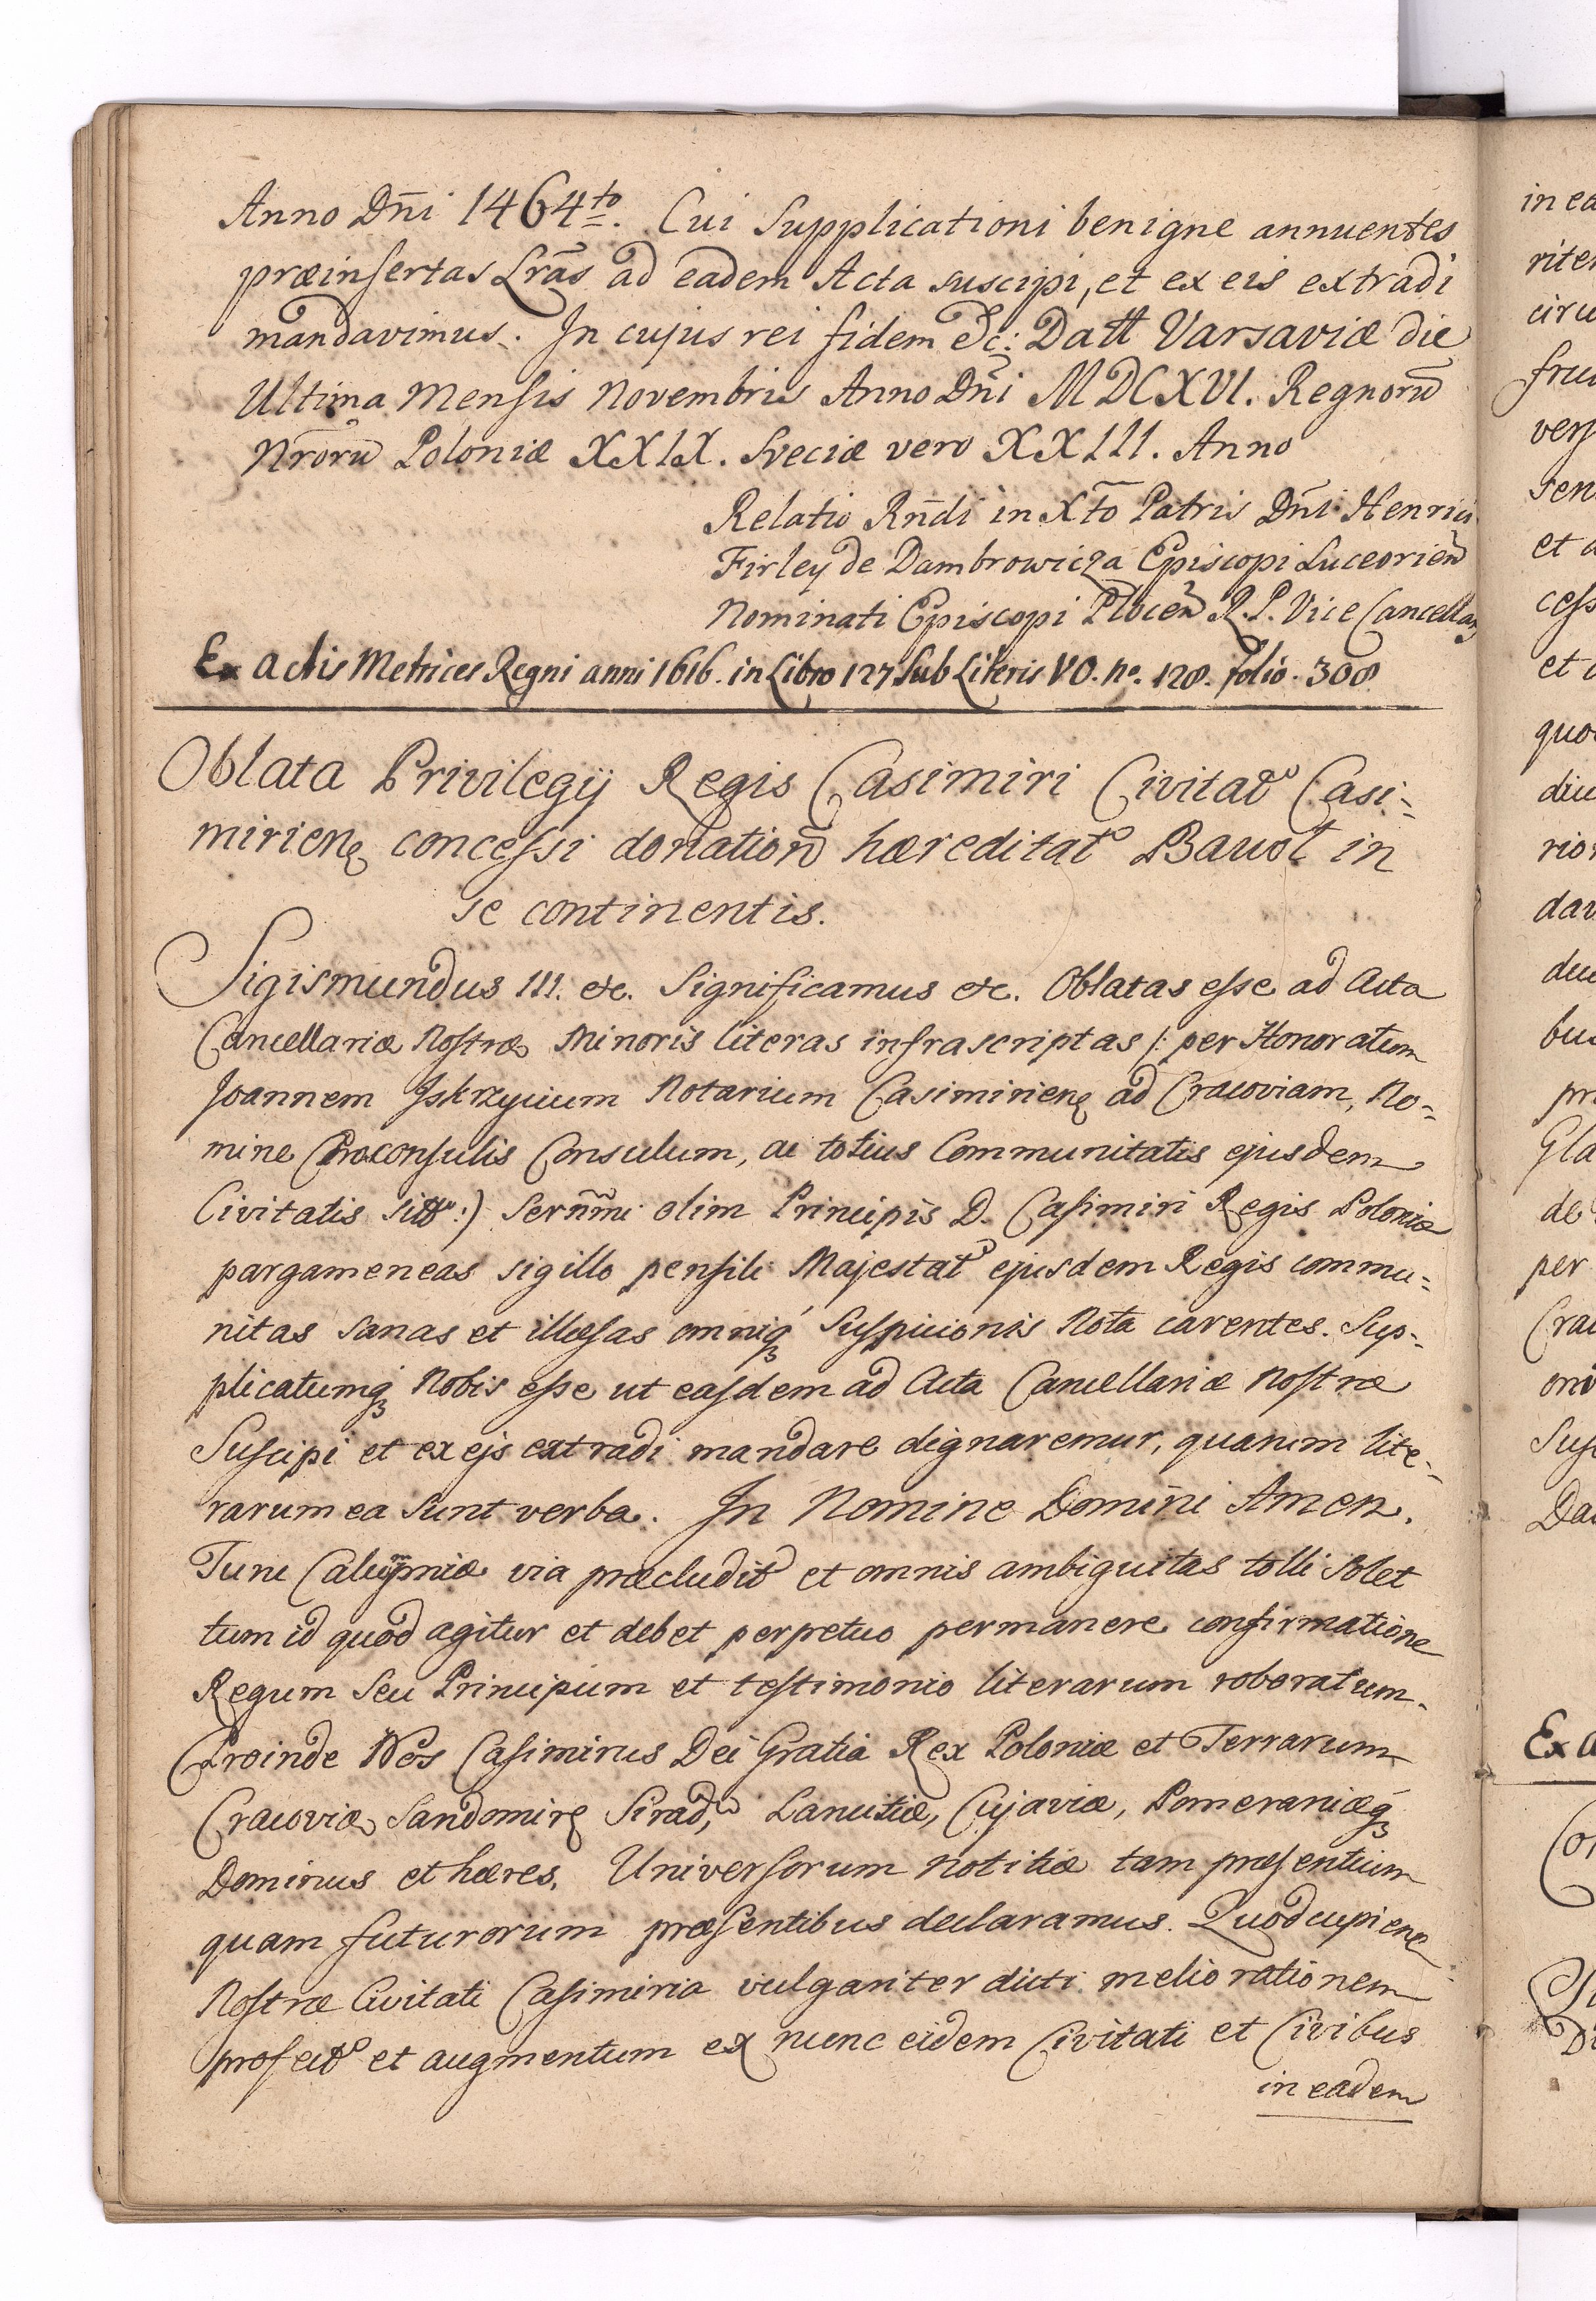 Anno Dñi 1464to. Cui Supplicationi benigne annuentes
præinsertas Lrãs ad eadem Acta suscipi, et ex eis extradi
mandavimus. In cujus rei fidem &c: Datt Varsaviæ die
Ultima Mensis Novembris Anno Dñi MDCXVI. Regnorū
Nrōrū Poloniæ XXIX. Sveciæ vero XXIII. Anno
Relatio Rñdi in Xt̃o Patris Dñi Henrici
Firley de Dambrowicza Episcopi Luceorieñ
Nominati Episcopi Ploceñ R. P. Vice Cancellarij
Ex actis Metrices Regni anni 1616. in Libro 127 sub Literis VO. no. 128. folio. 308
Oblata Privilegij Regis Casimiri Civitat Casi=
miriens concessi donation hæreditat Bawol in
se continentis.
Sigismundus III. &c. Significamus &c. Oblatas esse ad Acta
Cancellariæ Nostræ Minoris literas infrascriptas /: per Honoratum
Joannem Iskrzycium Notarium Casimiriens ad Cracoviam, No=
mine Proconsulis Consulum, ac totius Communitatis ejusdem
Civitatis :) Sernm̃i olim Principis D. Casimiri Regis Poloniæ
pargameneas sigillo pensili Majestat ejusdem Regis commu=
nitas sanas et illæsas omniq Suspicionis Nota carentes. Sup=
plicatumq Nobis esse ut easdem ad Acta Cancellariæ Nostræ
Suscipi et ex ejs extradi mandare dignaremur, quarum lite=
rarum ea sunt verba. In Nomine Domini Amen.
Tunc Calumpniæ via præcludit et omnis ambiguitas tolli solet
tum id quod agitur et debet perpetuo permanere confirmatione
Regum seu Principum et testimonio literarum roboratum.
Proinde Nos Casimirus Dei Gratia Rex Poloniæ et Terrarum
Cracoviæ Sandomire Sirad, Lancitiæ, Cujaviæ, Pomeraniæq
Dominus et hæres. Universorum notitiæ tam præsentium
quam futurorum præsentibus declaramus. Quod cupiens
Nostræ Civitati Casimiria vulgariter dicti meliorationem
profect et augmentum ex nunc eidem Civitati et Civibus
in eadem